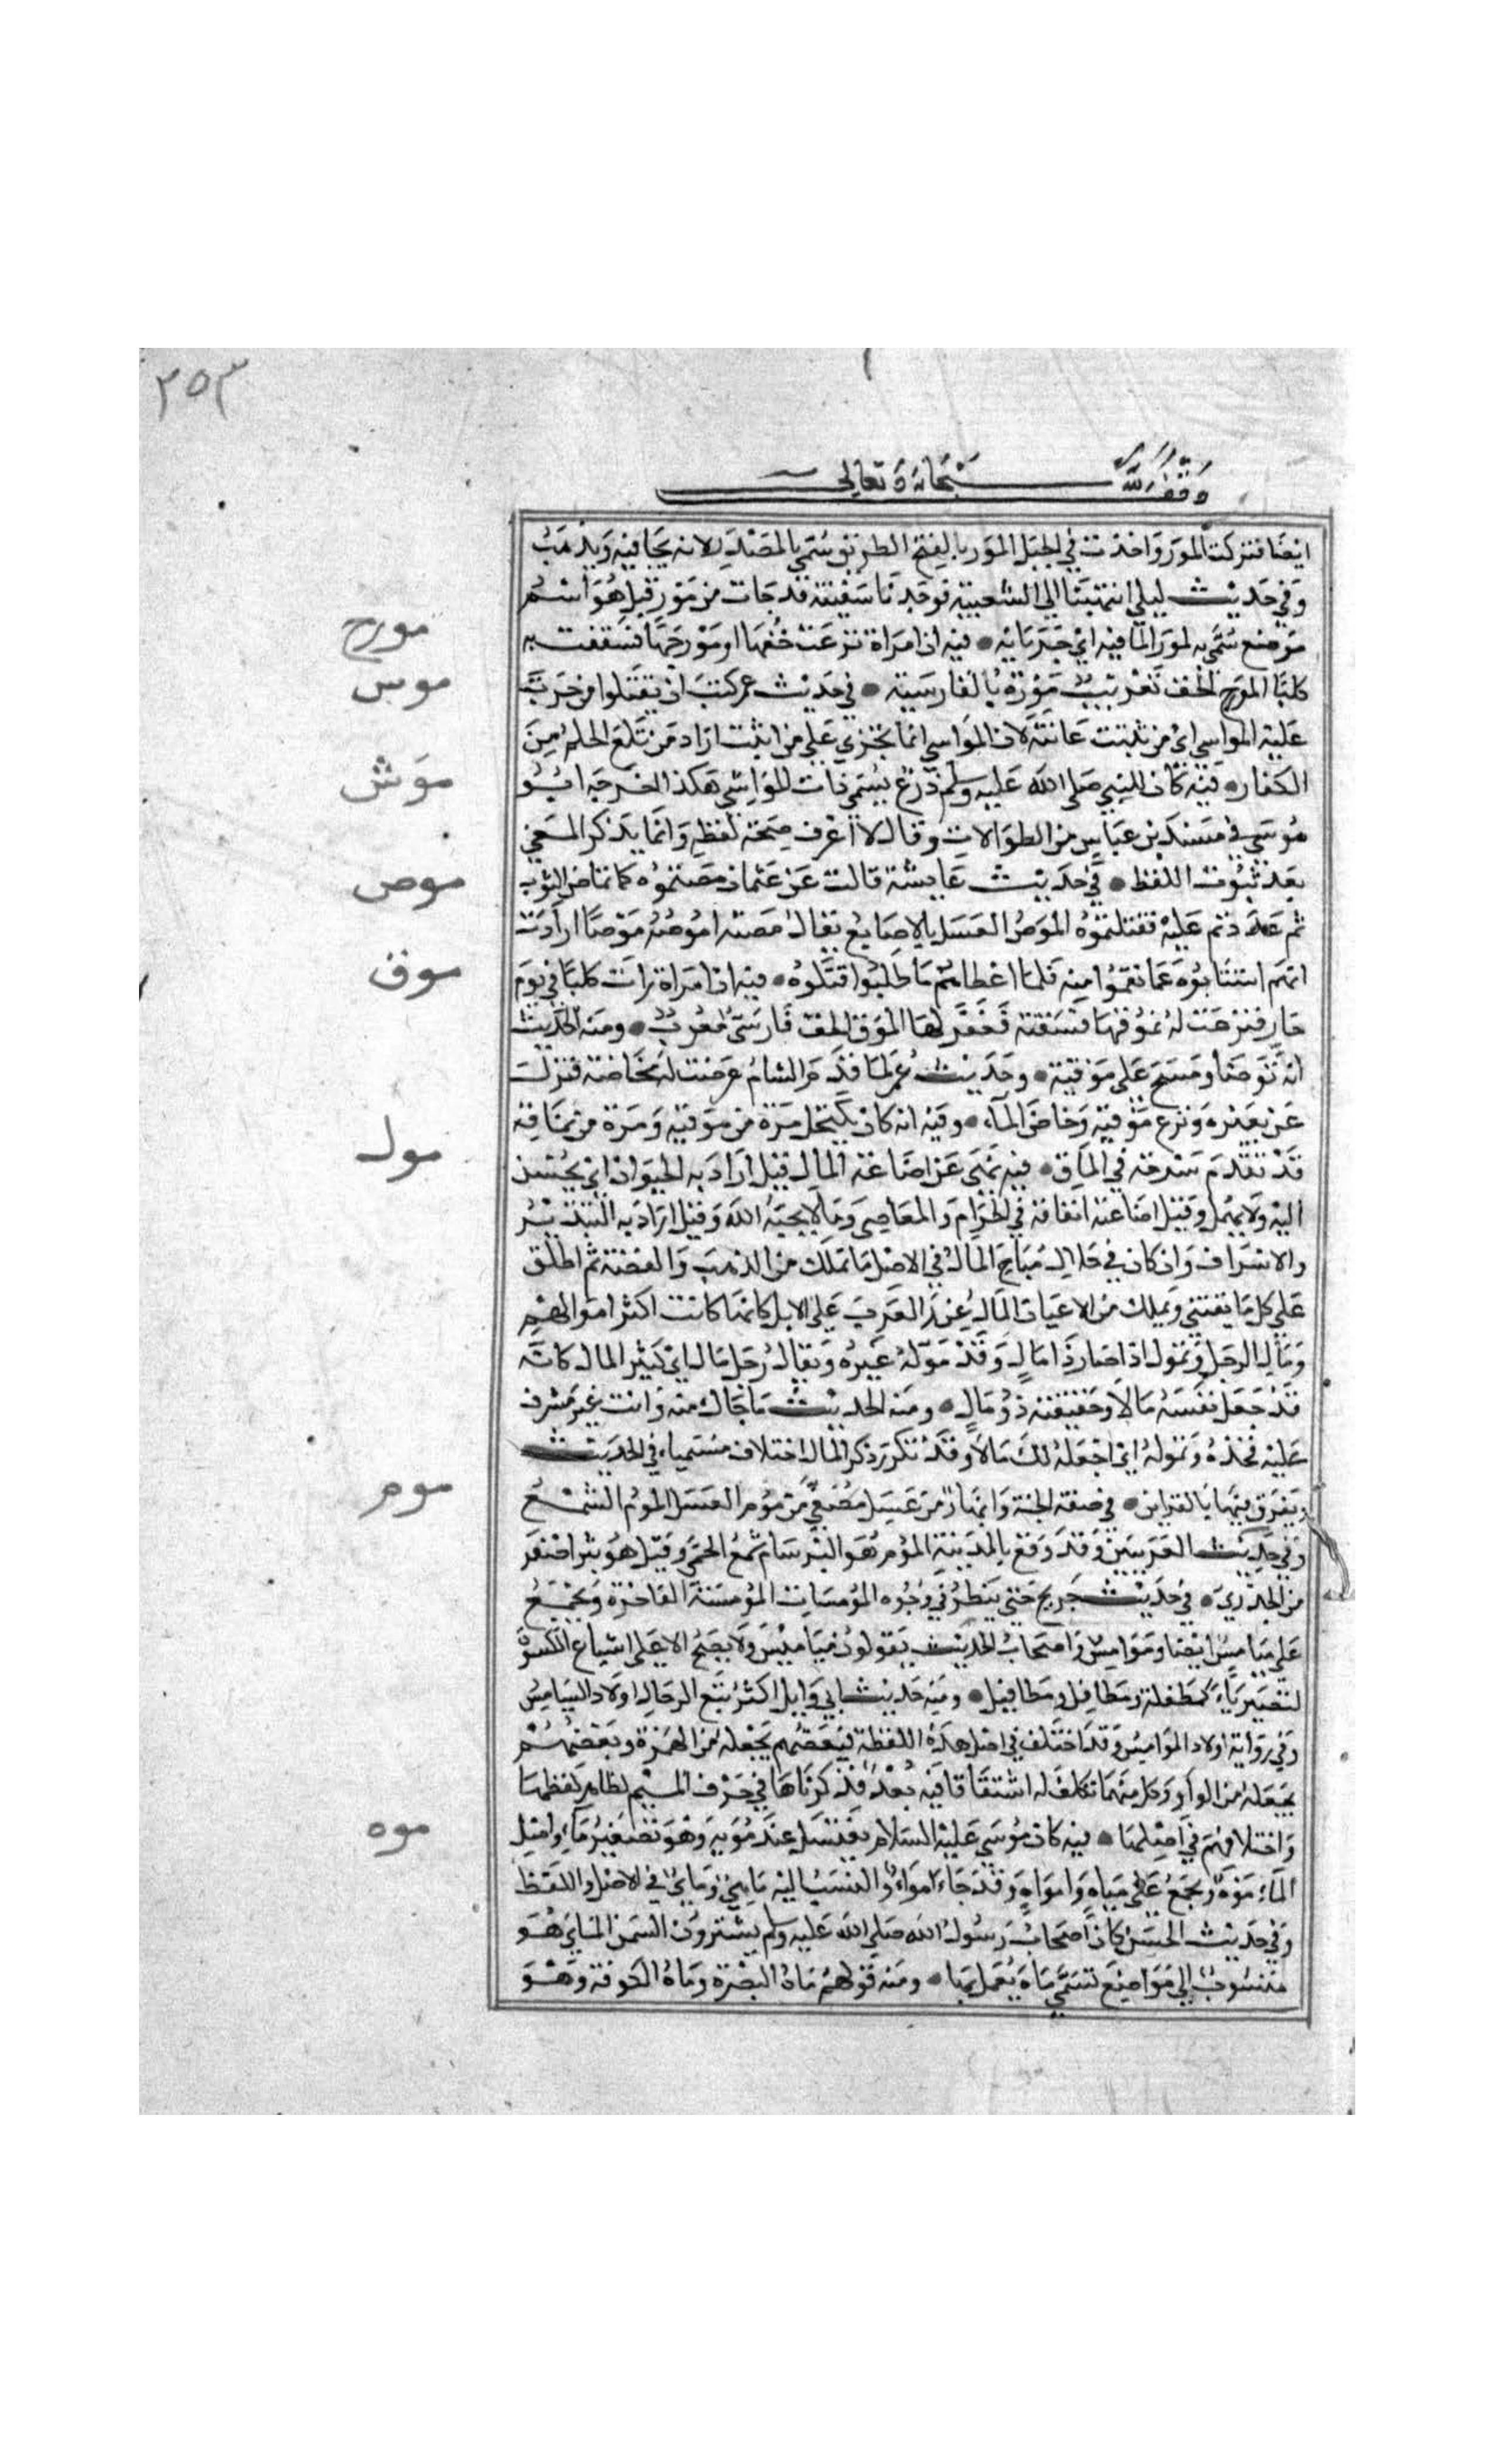 ٢٥٣
وقف لله سبحانه وتعالى
ايضا فتركت المور واخذت في الجبل المور بالفتح الطريق سمي بالمصدر لانه يجا فيه ويذهب
وفي حديث ليلى انتهينا الى الشعيبة فوجدنا سفينة قد جات من مور قيل هو اسم
مورج
موضع سمي به لمور الما فيه اي جريانه • فيه ان امراة نزعت خفها او مورجها فسقت به
موس
كلبا المورج الخف تعريب موزه بالفارسية • في حديث عمر كتب ان يقتلوا من جرت
عليه المواسي اي من نبتت عانته لان المواسي انما تجري على من انبت اراد من بلغ الحلم من
موش
الكفار • فيه كان للنبي صلى الله عليه وسلم درع يسمى ذات المواشي هكذا اخرجه ابو
موسى في مسند بن عباس من الطوالات وقال لا اعرف صحة لفظه وانما يذكر المعنى
موص
بعد ثبوت اللفظ • في حديث عايشة قالت عن عثمان مصتموه كما يماص الثوب
ثم عدوتم عليه فقتلتموه الموص الغسل بالاصابع يقال مصته اموصه موصا ارادت
موق
انهم استتابوه عما نقموا منه فلما اعطاهم ما طلبوا قتلوه • فيه ان امراة رات كلبا في يوم
حار فنزعت له بموقها فسقته فغفر لها الموق الخف فارسي معرب • ومنه الحديث
انه توضا ومسح على موقيه • وحديث عمر لما قدم الشام عرضت له مخاضة فنزل
عن بعيره ونزع موقيه وخاض الماء • وفيه انه كان يكتحل مرة من موقه ومرة من ماقه
مول
قد تقدم شرحه في الماق • فيه نهى عن اضاعة المال قيل اراد به الحيوان اي يحسن
اليه ولا يهمل وقيل اضاعته انفاقه في الحرام والمعاصي وما لا يحبه الله وقيل اراد به التبذير
والاسراف وان كان في حلال مباح المال في الاصل ما يملك من الذهب والفضة ثم اطلق
على كل ما يقتنى ويملك من الاعيان المال عند العرب على الابل لانها كانت اكثر اموالهم
ومال الرجل وتمول اذا صار ذا مال وقد موله غيره ويقال رجل مال اي كثير المال كانه
قد جعل نفسه مالا وحقيقته ذو مال • ومنه الحديث ما جاك منه وانت غير مشرف
عليه فخذه وتموله اي اجعله لك مالا وقد تكرر ذكر المال اختلاف مسمياه في الحديث
موم
ويفرق فيها بالقراين • في صفة الجنة وانهار من عسل مصفى من موم العسل الموم الشمع
وفي حديث العرنيين وقد وقع بالمدينة الموم هو البرسام مع الحمى وقيل هو بثر اصغر
من الجدري • في حديث جريج حتى ينظر في وجوه المومسات المومسة الفاجرة وتجمع
على ميامس ايضا وموامس واصحاب الحديث يقولون مياميس ولا يصح الا على اشباع الكسرة
لتصير ياء كمطفلة ومطافل ومطافيل • ومنه حديث ابي وايل اكثر تبع الدجال اولاد الميامس
وفي رواية اولاد الموامس وقد اختلف في اصل هذه اللفظة فبعضهم يجعله من الهمزة وبعضهم
يجعله من الواو وكل منهما تكلف له اشتقاقا فيه بعد فذكرناها في حرف الميم لظاهر لفظها
موه
واختلافهم في اصلها • فيه كان موسى عليه السلام يغتسل عند مويه وهو تصغير ماء واصل
الماء موه ويجمع على مياه وامواه وقد جاء امواء والنسب اليه ماهي وماءي في الاصل واللفظ
وفي حديث الحسن كان اصحاب رسول الله صلى الله عليه وسلم يشترون السمن المايي هو
منسوب الى مواضع تسمى ماه يعمل بها • ومنه قولهم ماه البصرة وماه الكوفة وهو